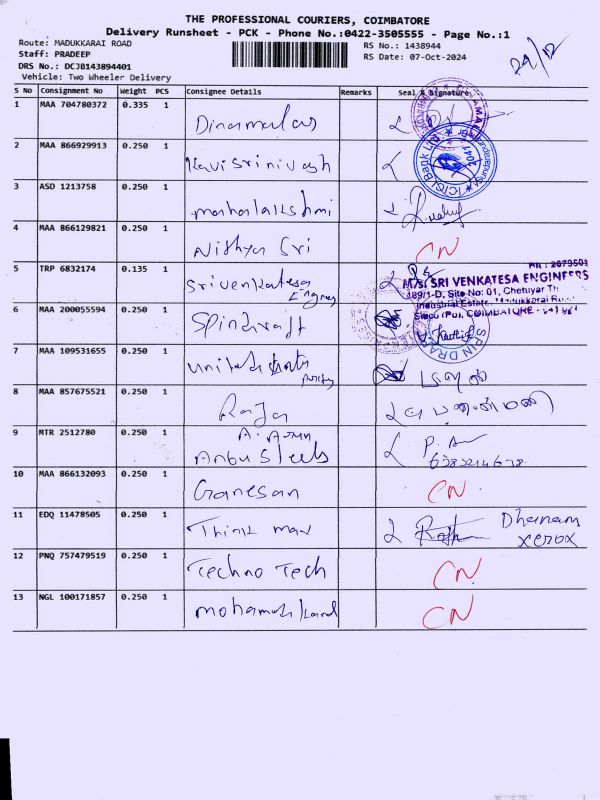 THE PROFESSIONAL COURIERS, COIMBATORE
Delivery Runsheet - PCK - Phone No.:0422-3505555 - Page No.:1
Route: MADUKKARAI ROAD
Staff: PRADEEP
DRS No.: DCJB143894401
Vehicle: Two Wheeler Delivery
RS No.: 1438944
RS Date: 07-Oct-2024
S No Consignment No Weight PCS Consignee Details Remarks Seal & Signature
1 MAA 704780372 0.335 1 Dinamalar
2 MAA 866929913 0.250 1 Kavisrinivash
ICICI Bank Ltd.
3 ASD 1213758 0.250 1 mahalakshmi
4 MAA 866129821 0.250 1 Nithya Sri CN
5 TRP 6832174 0.135 1 Srivenkatesa
M/s. SRI VENKATESA ENGINEERS
189/1-D, Site No: 01, Chettiyar
Industrial Estate, Madukkarai
COIMBATORE
6 MAA 200055594 0.250 1 Spindraft
SPIN DRAFT
7 MAA 109531655 0.250 1 United
8 MAA 857675521 0.250 1 Raja
9 MTR 2512780 0.250 1 A. Arun
Anbu Steels
10 MAA 866132093 0.250 1 Ganesan CN
11 EDQ 11478505 0.250 1 Think max Dhanam
xerox
12 PNQ 757479519 0.250 1 Techno Tech CN
13 NGL 100171857 0.250 1 CN